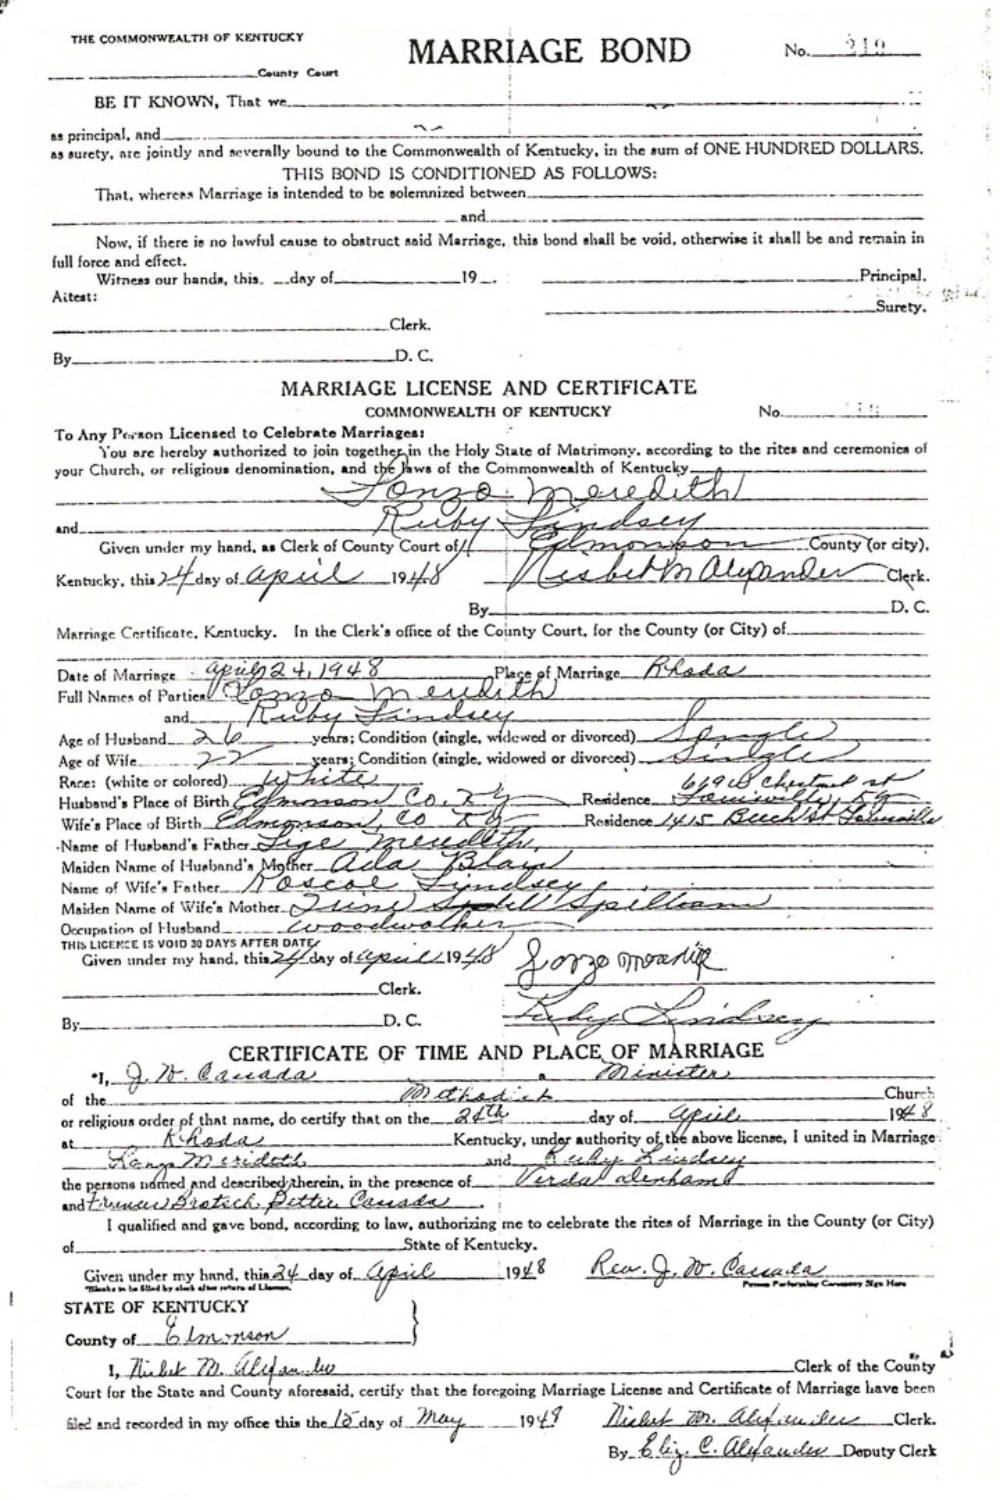 THE COMMONWEALTH OF KENTUCKY
MARRIAGE BOND
No. 319
County Court
BE IT KNOWN, That we
as principal, and
as surety, are jointly and severally bound to the Commonwealth of Kentucky, in the sum of ONE HUNDRED DOLLARS.
THIS BOND IS CONDITIONED AS FOLLOWS:
That, whereas Marriage is intended to be solemnized between
and
Now, if there is no lawful cause to obstruct said Marriage, this bond shall be void, otherwise it shall be and remain in
full force and effect.
Witness our hands, this. day of 19 . Principal.
Attest:
Surety.
Clerk.
By D. C.
MARRIAGE LICENSE AND CERTIFICATE
COMMONWEALTH OF KENTUCKY No.
To Any Person Licensed to Celebrate Marriages:
You are hereby authorized to join together in the Holy State of Matrimony, according to the rites and ceremonies of
your Church, or religious denomination, and the laws of the Commonwealth of Kentucky
Lonzo Meredith
and Ruby Lindsey
Given under my hand, as Clerk of County Court of Edmonson County (or city),
Kentucky, this 24 day of April 1948 Nisbet M Alexander Clerk.
By D. C.
Marriage Certificate, Kentucky. In the Clerk's office of the County Court, for the County (or City) of
Date of Marriage April 24, 1948 Place of Marriage Rhoda
Full Names of Parties Lonzo Meredith
and Ruby Lindsey
Age of Husband 26 years; Condition (single, widowed or divorced) Single
Age of Wife 22 years; Condition (single, widowed or divorced) Single
Race: (white or colored) White 619 W Chestnut st
Husband's Place of Birth Edmonson Co. Ky Residence Louisville, Ky
Wife's Place of Birth Edmonson, Co Ky Residence 1415 Beech St Louisville
Name of Husband's Father Lige Meredith,
Maiden Name of Husband's Mother Ada Blain
Name of Wife's Father Roscoe Lindsey
Maiden Name of Wife's Mother Spillman
Occupation of Husband Woodworker
THIS LICENCE IS VOID 30 DAYS AFTER DATE
Given under my hand, this 24 day of April 1948 Lonzo
Clerk.
By D. C. Ruby Lindsey
CERTIFICATE OF TIME AND PLACE OF MARRIAGE
*I, J. W. Canada a Minister
of the Methodist Church
or religious order of that name, do certify that on the 24th day of April 1948
at Rhoda Kentucky, under authority of the above license, I united in Marriage
Lonzo Merideth and Ruby Lindsey
the persons named and described therein, in the presence of Verda
and Canada
I qualified and gave bond, according to law, authorizing me to celebrate the rites of Marriage in the County (or City)
of State of Kentucky.
Given under my hand, this 24 day of April 1948 Rev. J. W. Canada
*Blanks to be filled by clerk after return of License. Person Performing Ceremony Sign Here
STATE OF KENTUCKY
County of Edmonson
I, Nisbet M. Alexander Clerk of the County
Court for the State and County aforesaid, certify that the foregoing Marriage License and Certificate of Marriage have been
filed and recorded in my office this the 15 day of May 1948 Nisbet M. Alexander Clerk.
By Eliz. C. Alexander Deputy Clerk